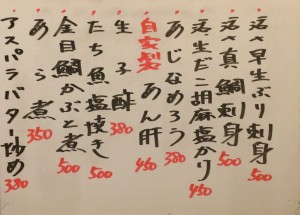 活〆早生ぶり刺身 500
活〆真鯛刺身 500
活生だこ胡麻塩かり 450
あじなめろう 380
自家製 あん肝 450
生子酢 380
たち魚塩焼き 500
金目鯛かぶと煮 500
あら煮 350
アスパラバター炒め 380